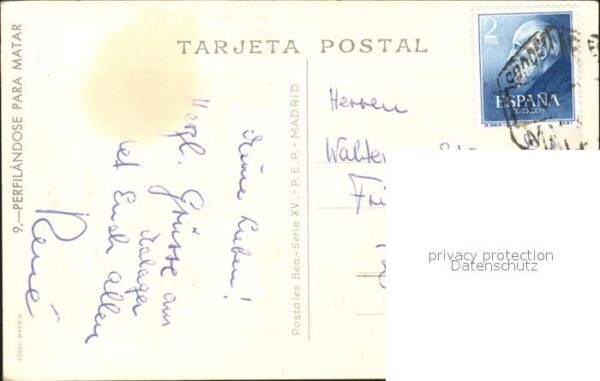 9.—PERFILÁNDOSE PARA MATAR
TARJETA POSTAL
2
PTAS
ESPAÑA
CORREOS
Meine Lieben!
Herzl. Grüsse aus
Malaga
Euch allen
René
Postales Bea.-Serie XV.-P.E.P.-MADRID
Herren
Walter
privacy protection
Datenschutz